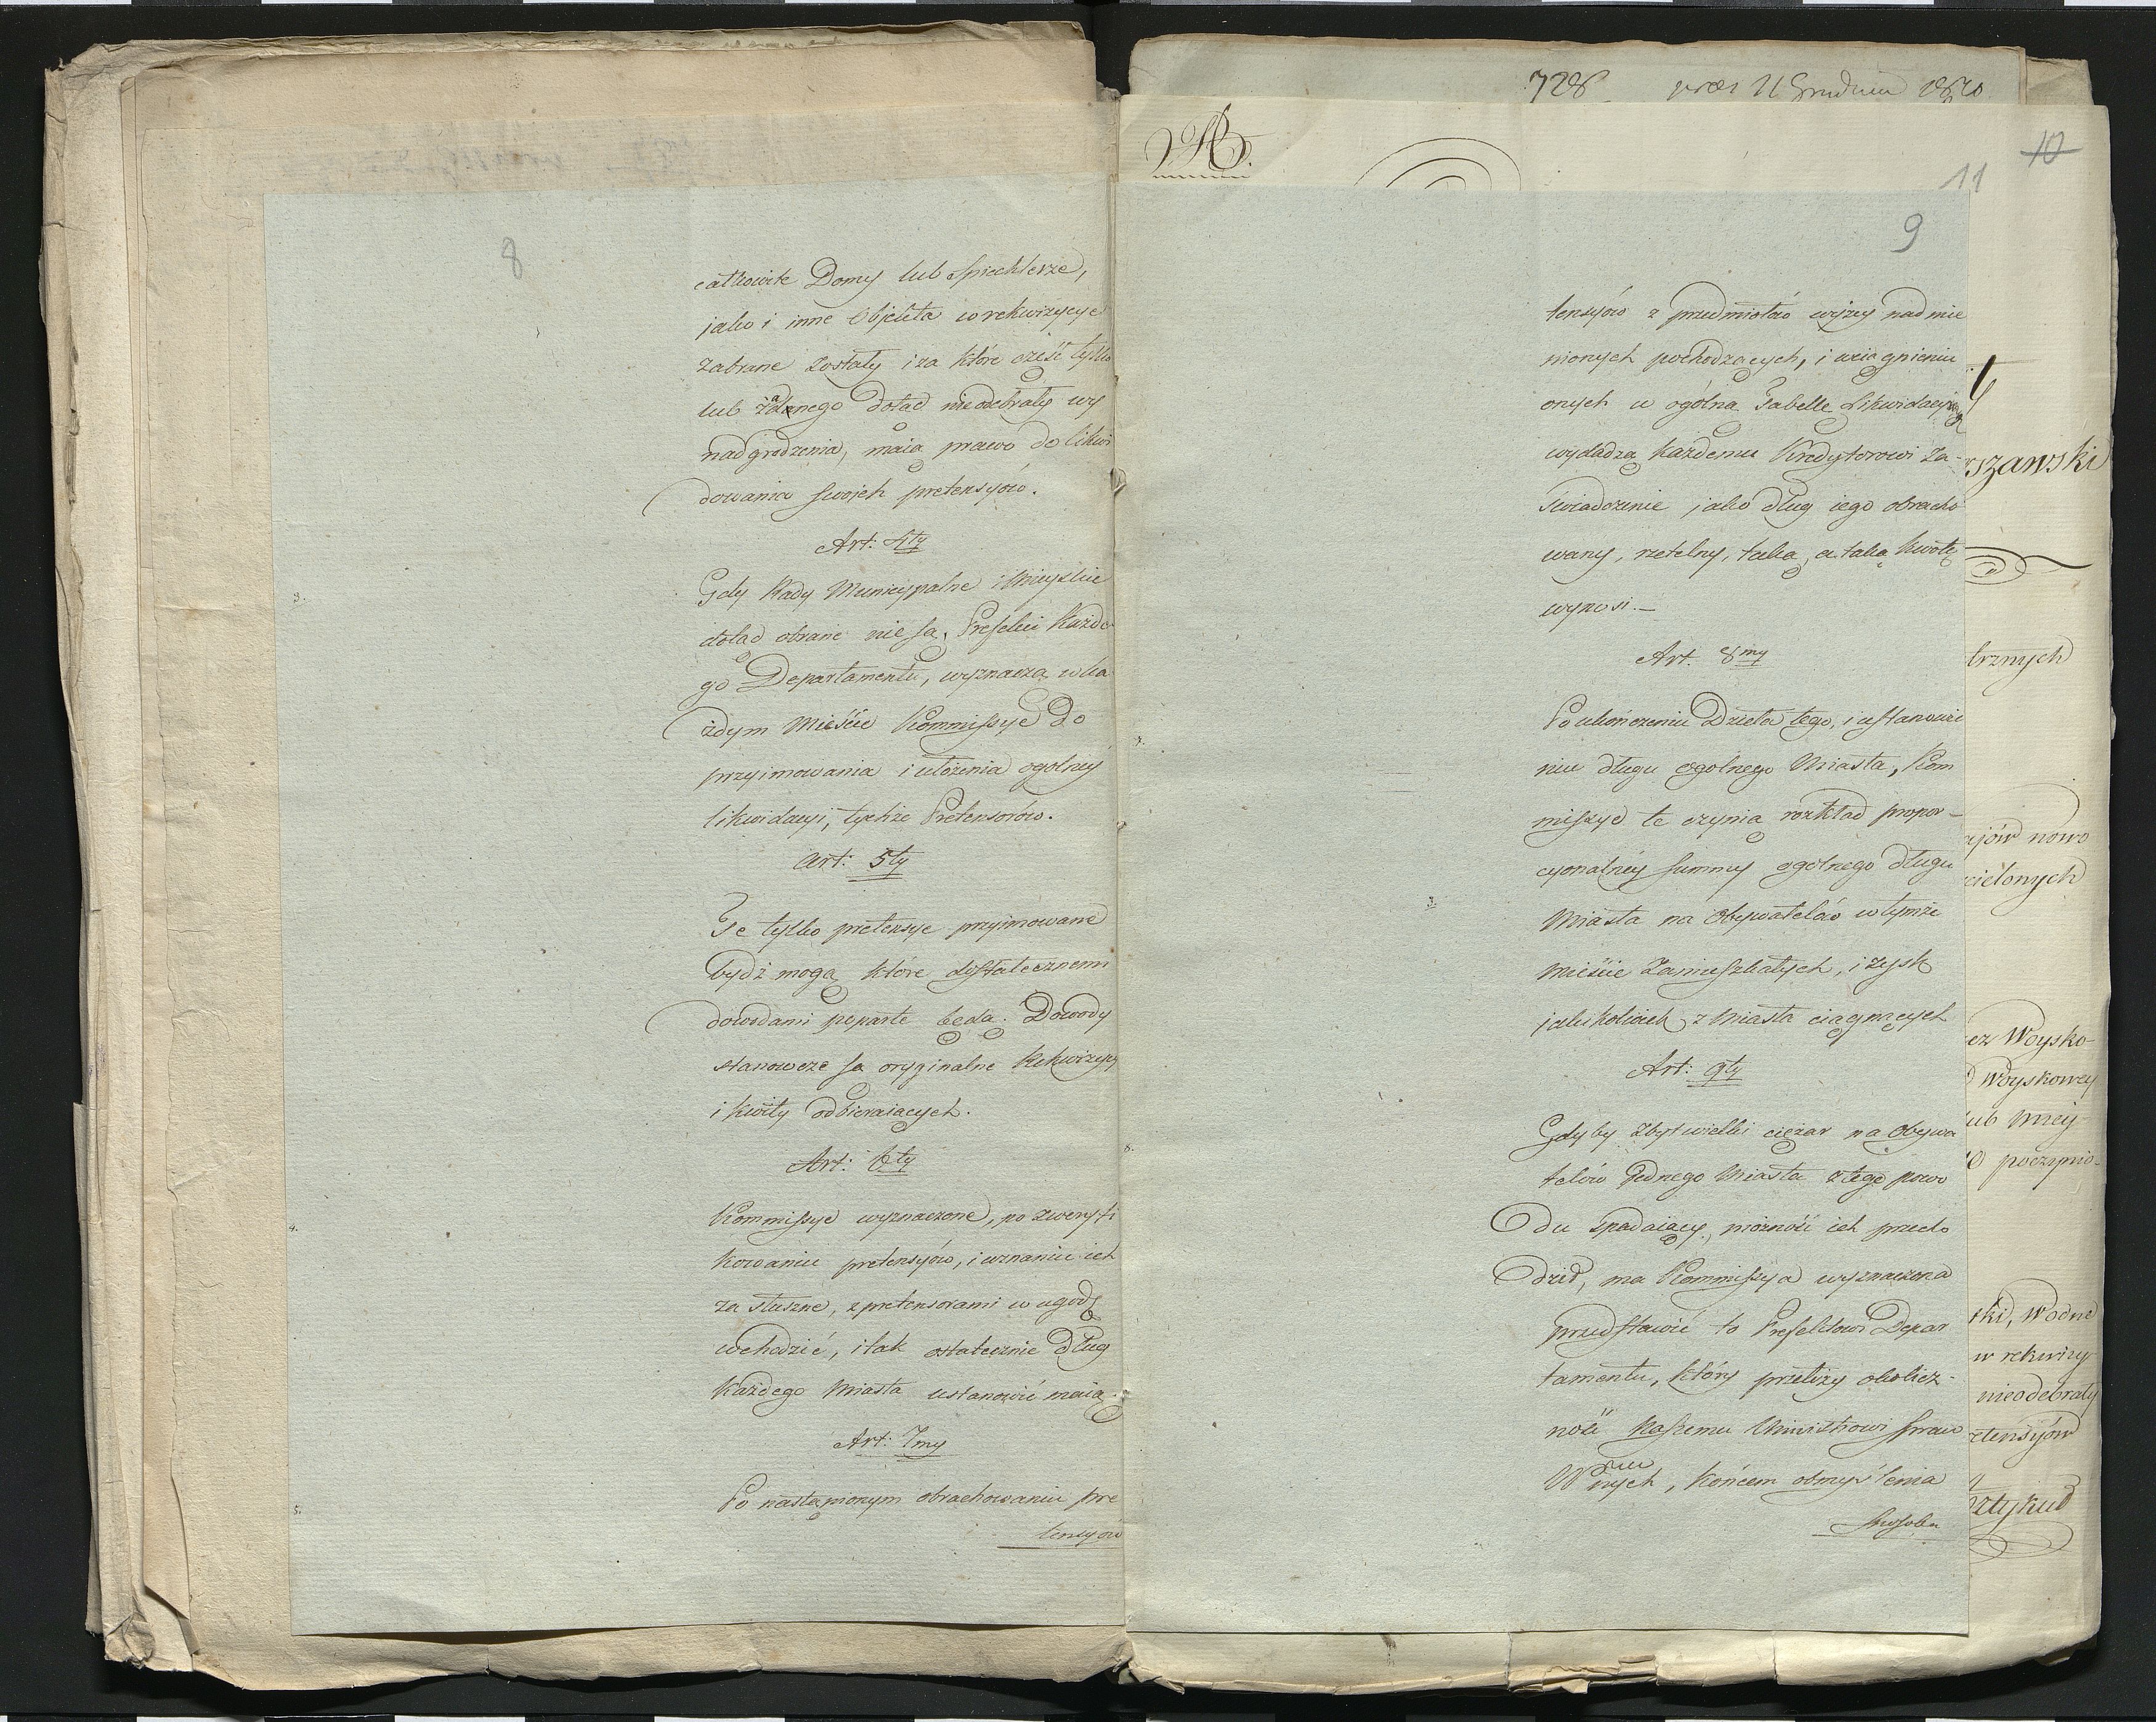 8
całkowite Domy lub Spiechlerze,
jako i inne Objekta w rekwizycye
zabrane zostały i za które część tylko
lub żadnego dotąd nieodebrały wy
nadgrodzenia, maią prawo do likwi
dowania swoich pretensyów.
Art: 4ty
3.
Gdy Rady Municypalne i Mieyskie
dotąd obrane nie są, Prefekci każde
go Departamentu, wyznaczą w ka
żdym Mieście Kommissye do
przyimowania i ułożenia ogolney
likwidacyi, tychże Pretensorów.
Art: 5ty
Te tylko pretensye przyimowane
bydź mogą które dostatecznemi
dowodami poparte będą. Dowody
stanowcze są oryginalne Rekwizycye
i kwity odbieraiących.
Art: 6ty
4.
Kommissye wyznaczone, po zweryfi
kowaniu pretensyów, i uznaniu ich
za słuszne, z pretensorami w ugodę
wchodzić, i tak ostatecznie dług
każdego Miasta ustanowić maią.
Art: 7my
5.
Po nastąpionym obrachowaniu pre
tensyow
728 11 Grudnia 1810
10
11
9
tensyów z przedmiotów wyżey nadmie
nionych pochodzących, i wciągnieniu
onych w ogólną Tabellę Likwidacyiną
wydadzą każdemu Kredytorowi Za-
świadczenie jako dług iego obracho
wany, rzetelny, taką, a taką kwotę
wynosi.—
Art. 8my
7.
Po ukończeniu Dzieła tego, i ustanowie
niu długu ogolnego Miasta, Kom
missye te czynią rozkład propor-
cyonalney summy ogolnego długu
3.
Miasta na Obywatelów w tymże
Mieście Zamieszkałych, i zysk
jakikolwiek z Miasta ciągnących
Art: 9ty
8.
Gdyby zbyt wielki ciężar na Obywa
telów jednego Miasta z tego powo
du spadaiący, możność ich przecho
dził, ma Kommissya wyznaczona
przedstawić to Prefektowi Depar
tamentu, który przełoży okolicz-
ność Naszemu Ministrowi Spraw
Wewnych, końcem obmyślenia
sposobu
rszawski
trznych
ajów nowo
cielonych
ez Woysko-
woyskowey
ub miey-
poczynio-
ski, Wodne
w rekwizy
nieodebrały
etensyów
rtykuł